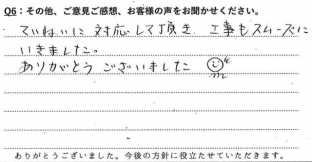 Q6：その他、ご意見ご感想、お客様の声をお聞かせください。
ていねいに対応して頂き 工事もスムーズに
いきました。
ありがとうございました
ありがとうございました。今後の方針に役立たせていただきます。